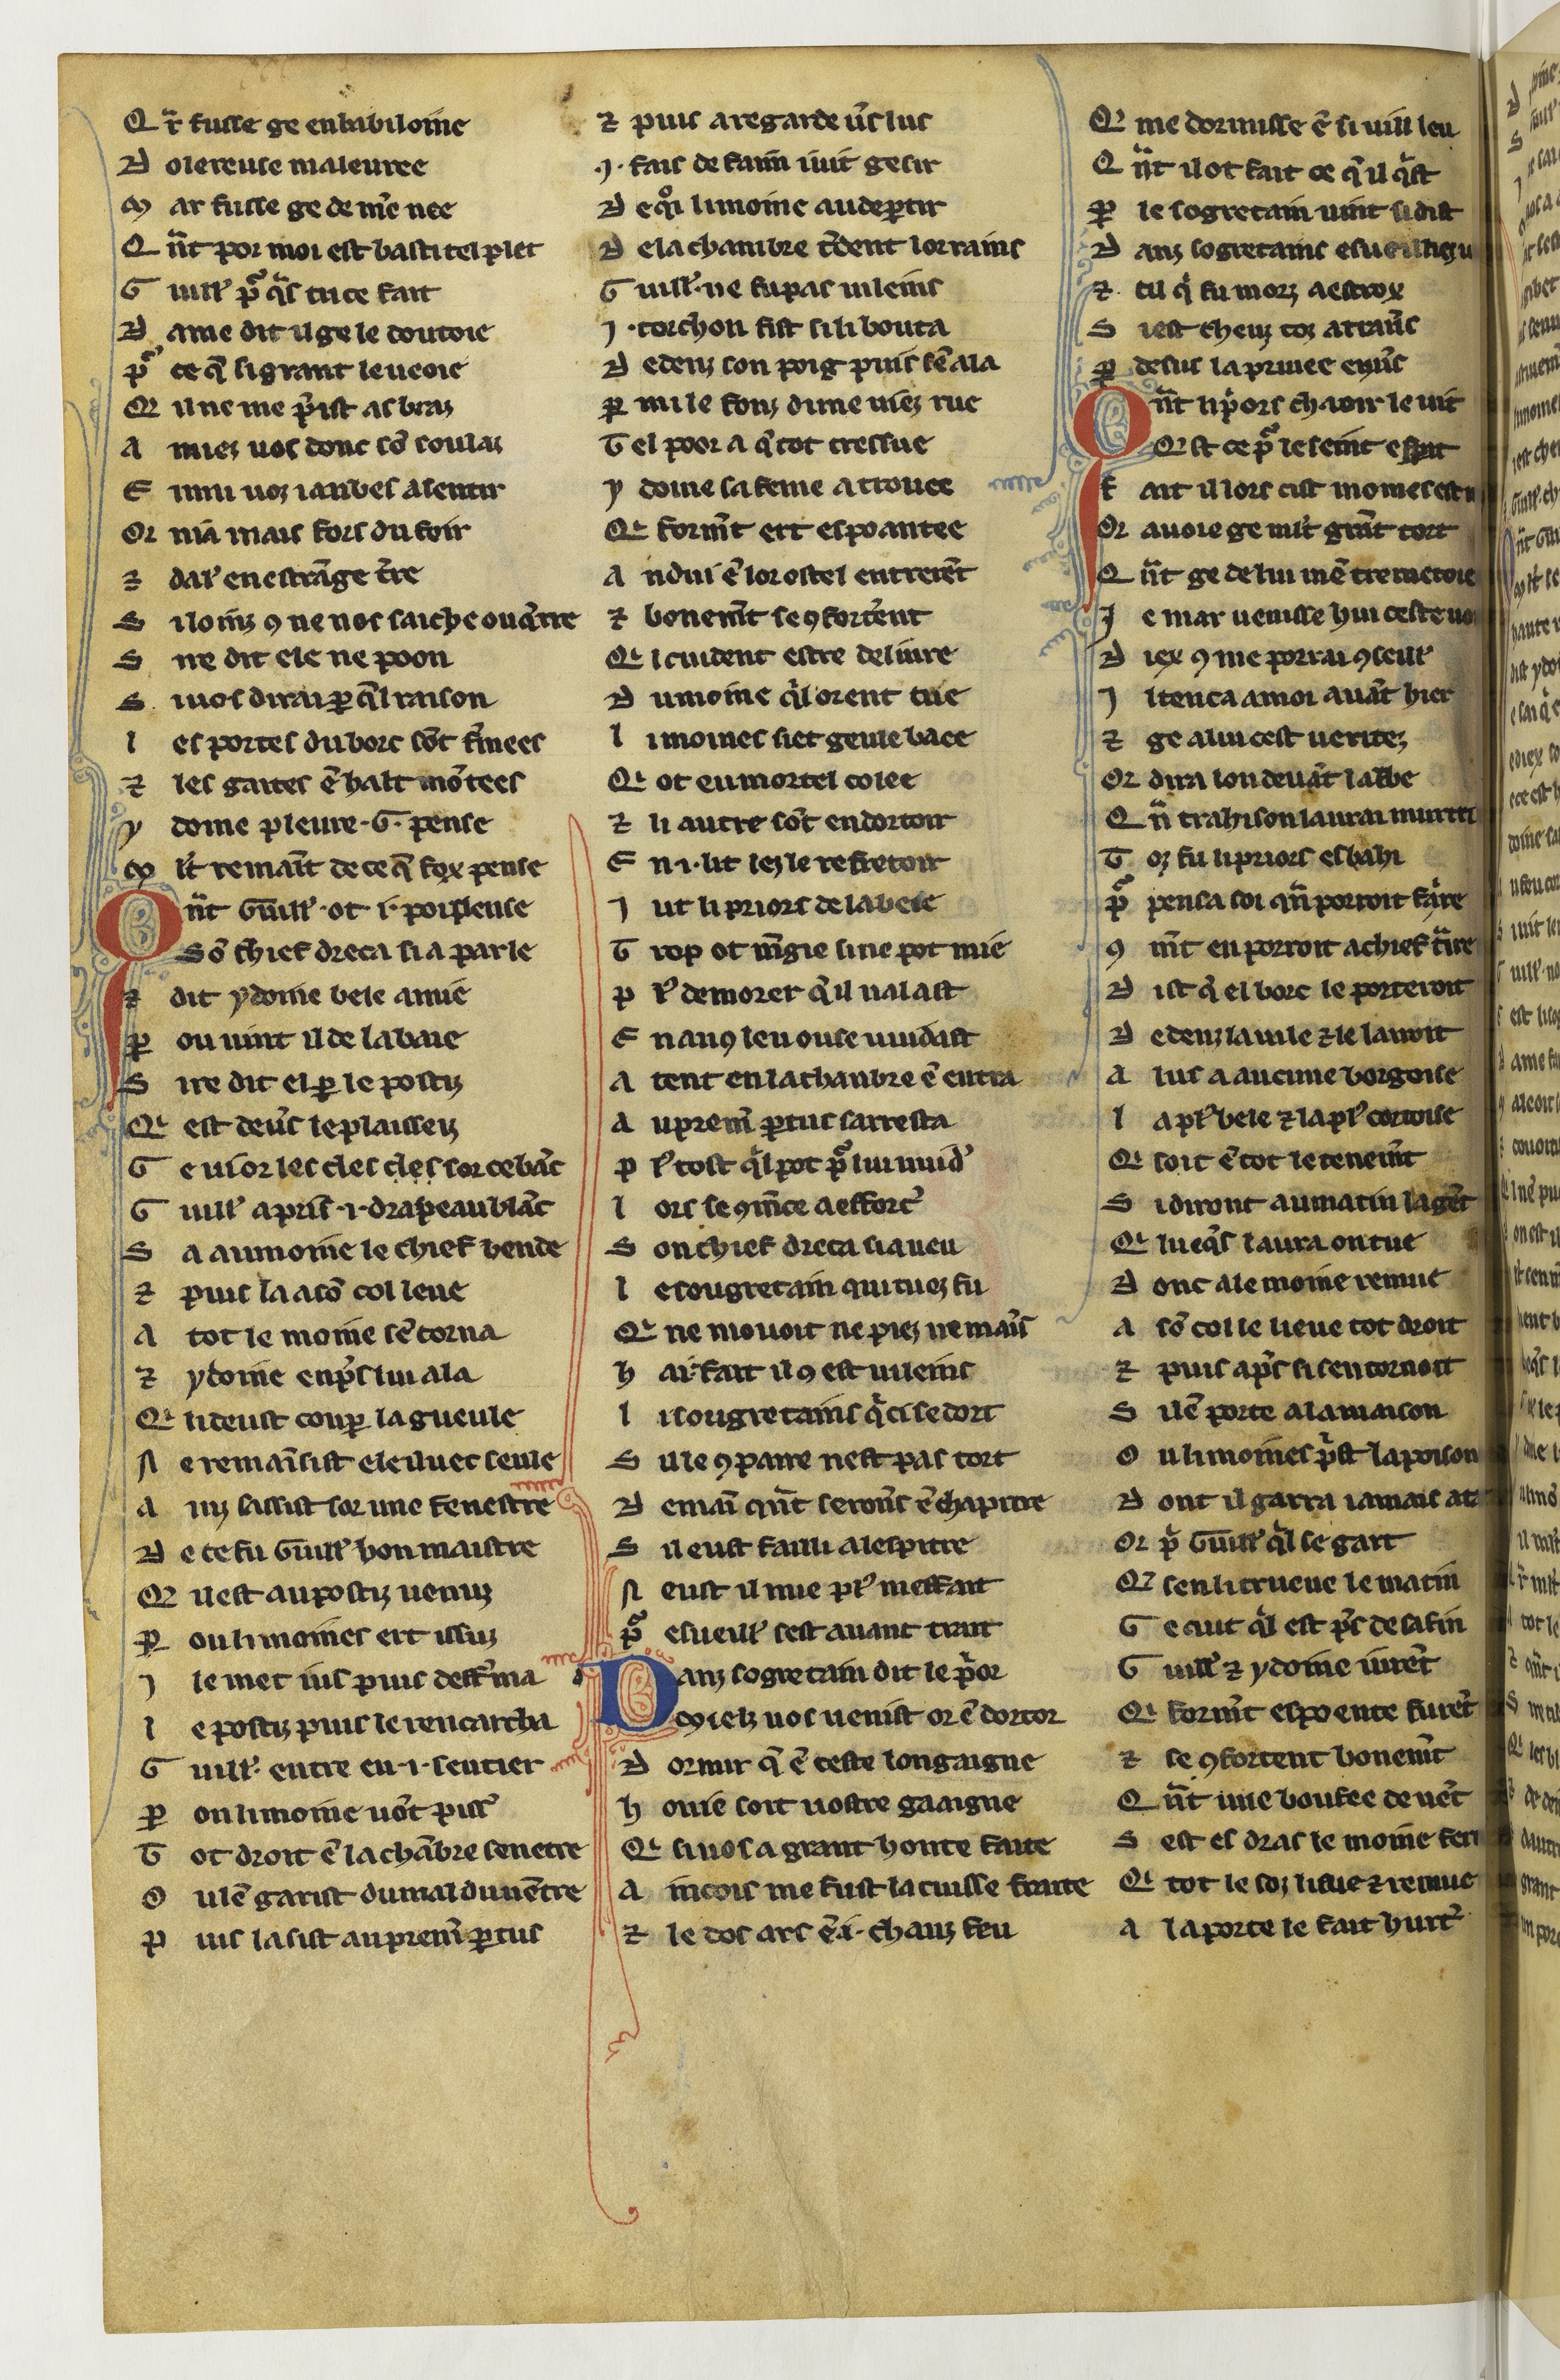 Q̃r fusse ge en babiloine
D olereuse maleuree
M ar fusse ge de me᷑ nee
Q ñt por moi est basti tel plet
G uill᷑ p̃ q̃s tu ce fait
D ame dit il ge le doutoie
p̃ ce q̃ si grant le veoie
Q' il ne me p᷑ist as braz
A miez uos donc so᷑ soulaz
E nnu uoz ianbes a sentir
Q' nia᷑ mais fors du foir
⁊ dal᷑ en estra᷑nge t᷑re
S i loinz ꝯ ne nos saiche ou q̃rre
S ire dit ele ne poon
S i uos dirai ꝑ q̃l raison
l es portes du borc so᷑t f᷑mees
⁊ les gaites e᷑ halt mo᷑tees
y doine pleure .G. pense
M lt᷑ remai᷑t de ce q̃ fox pense
Q ñt Guill᷑ ot .i. poi pense
So᷑ chief dreca si a parle
⁊ dit ydoine bele amie
ꝑ ou uint il de labaie
S ire dit el ꝑ le postiz
Q' est deu᷑s le plaisseiz
G e ui or les cles cles sor ce ba᷑c
G uill᷑ a pris .i. drapeau bla᷑c
S a au moine le chief bende
⁊ puis la a so᷑ col leue
A tot le moine se᷑ torna
⁊ ydoine enp᷑s lui ala
Q' li deust couꝑ la gueule
N e remai᷑sist ele iluec seule
A inz sassist sor une fenestre
D e ce fu Guill᷑ bon maistre
Q' il est au postiz uenuz
ꝑ ou li moines ert issuz
J l e met ius puis deff᷑ma
l e postiz puis le rencarcha
G uill᷑. entre en .i. sentier
ꝑ ou li moine uo᷑t piss᷑
T ot droit e᷑ la cha᷑bre senetre
O u le᷑ garist du mal du ue᷑tre
p uis lasist au prem᷑ ꝑtuis
⁊ puis a regarde u᷑s luis
.j. fais de faim i uit gesir
D e q̊i li moine au deꝑtir
D e la chambre t᷑dent lor rains
G uill᷑. ne fu pas uileins
J . torchon fist si li bouta
D edenz son poig puis se᷑ ala
ꝑ mi le fonz dune uiez rue
T el poor a q̃ tot tressue
y doine sa feme a trouee
Q' form᷑t ert espoantee
A ndui e᷑ lor ostel entrere᷑t
⁊ bonem᷑t se ꝯfort᷑ent
Q' l cuident estre deliure
D u moine q̃l orent tue
l i moines siet geule baee
Q' ot eu mortel colee
⁊ li autre so᷑t en dortoir
E n .i. lit lez le refretoir
J ut li priors de labeie
T rop ot m᷑gie si ne pot mie
p l᷑ demorer q̃ il nalast
E n auꝯ leu ou se uuidast
A tent en la chanbre e᷑ entra
A u prem᷑ ꝑtuis sarresta
p l᷑ tost q̃l pot p̃ lui uuid᷑
l ors se ꝯm᷑ce a efforc᷑
S on chief dreca si a ueu
l e sougretain qui tuez fu
Q' ne mouoit ne piez ne mai᷑s
h ai fait il ꝯ est uileins
l i sougretains q̃ ci se dort
S il le ꝯpaire nest pas tort
D emai᷑ qñt serons᷑ e᷑ chapitre
S il eust failli a lespitre
N eust il mie pl᷑ meffait
p̃ esueill᷑ sest auant trait
D anz sogretain dit le p᷑or
Mielz uos uenist or e᷑ dortor
D ormir q̃ e᷑ ceste longaigne
h onie soit uostre gaaigne
Q' si uos a grant honte faite
A incois me fust la cuisse fraite
⁊ le dos ars e᷑ .i. chauz feu
Q' me dormisse e᷑ si uill leu
Q ñt il ot fait ce q̃ il q̃st
ꝑ le sogretain uint si dist
D anz sogretains
⁊ cil q̃ fu morz a estrox
S iest cheuz toz a trau᷑s
ꝑ desus la priuee enu᷑s
Q ñt li p᷑ors chaoir le uit
Q' st ce p̃ le seint esp̃it
f ait il lors cist moines est
Q' auoie ge mlt᷑ gra᷑t tort
Q ñt ge de lui me᷑tremetoie
J e mar uenisse hui ceste uo
D iex ꝯ me porrai ꝯseill᷑
J l tenca a moi aua᷑t hier
⁊ ge a lui cest ueritez
Q' dira lon deua᷑t labbe
Q ñ trahison laurai murtri
T oz fu li priors esbahi
p̃ pensa soi q̃n porroit faire
ꝯ m᷑t en porroit a chief t᷑ire
D ist q̃ el borc le porteroit
D edenz la uile ⁊ le lairoit
A luis a aucune borgoise
l a pl᷑ bele ⁊ la pl᷑ cortoise
Q' soit e᷑ tot le tenem᷑t
S i diront au matin la ge᷑t
Q' lueq̃s laura on tue
D onc a le moine remue
A so᷑ col le lieue tot droit
⁊ puis ap᷑s si sen tornoit
S il e᷑ porte a la maison
O u li moines p᷑st la poison
D ont il garra iamais a ta
Q' p̃ Guill᷑ q̃l se gart
Q' sen li trueue le matin
G e cuit q̃l est p᷑s de sa fin
G uill᷑ ⁊ ydoine iure᷑t
Q' form᷑t espoente fure᷑t
⁊ se ꝯfortent bonem᷑t
Q ñt une boufee de ue᷑t
S est es dras le moine feri
Q' tot le soz lieue ⁊ remue
A la porte le fait hurt᷑